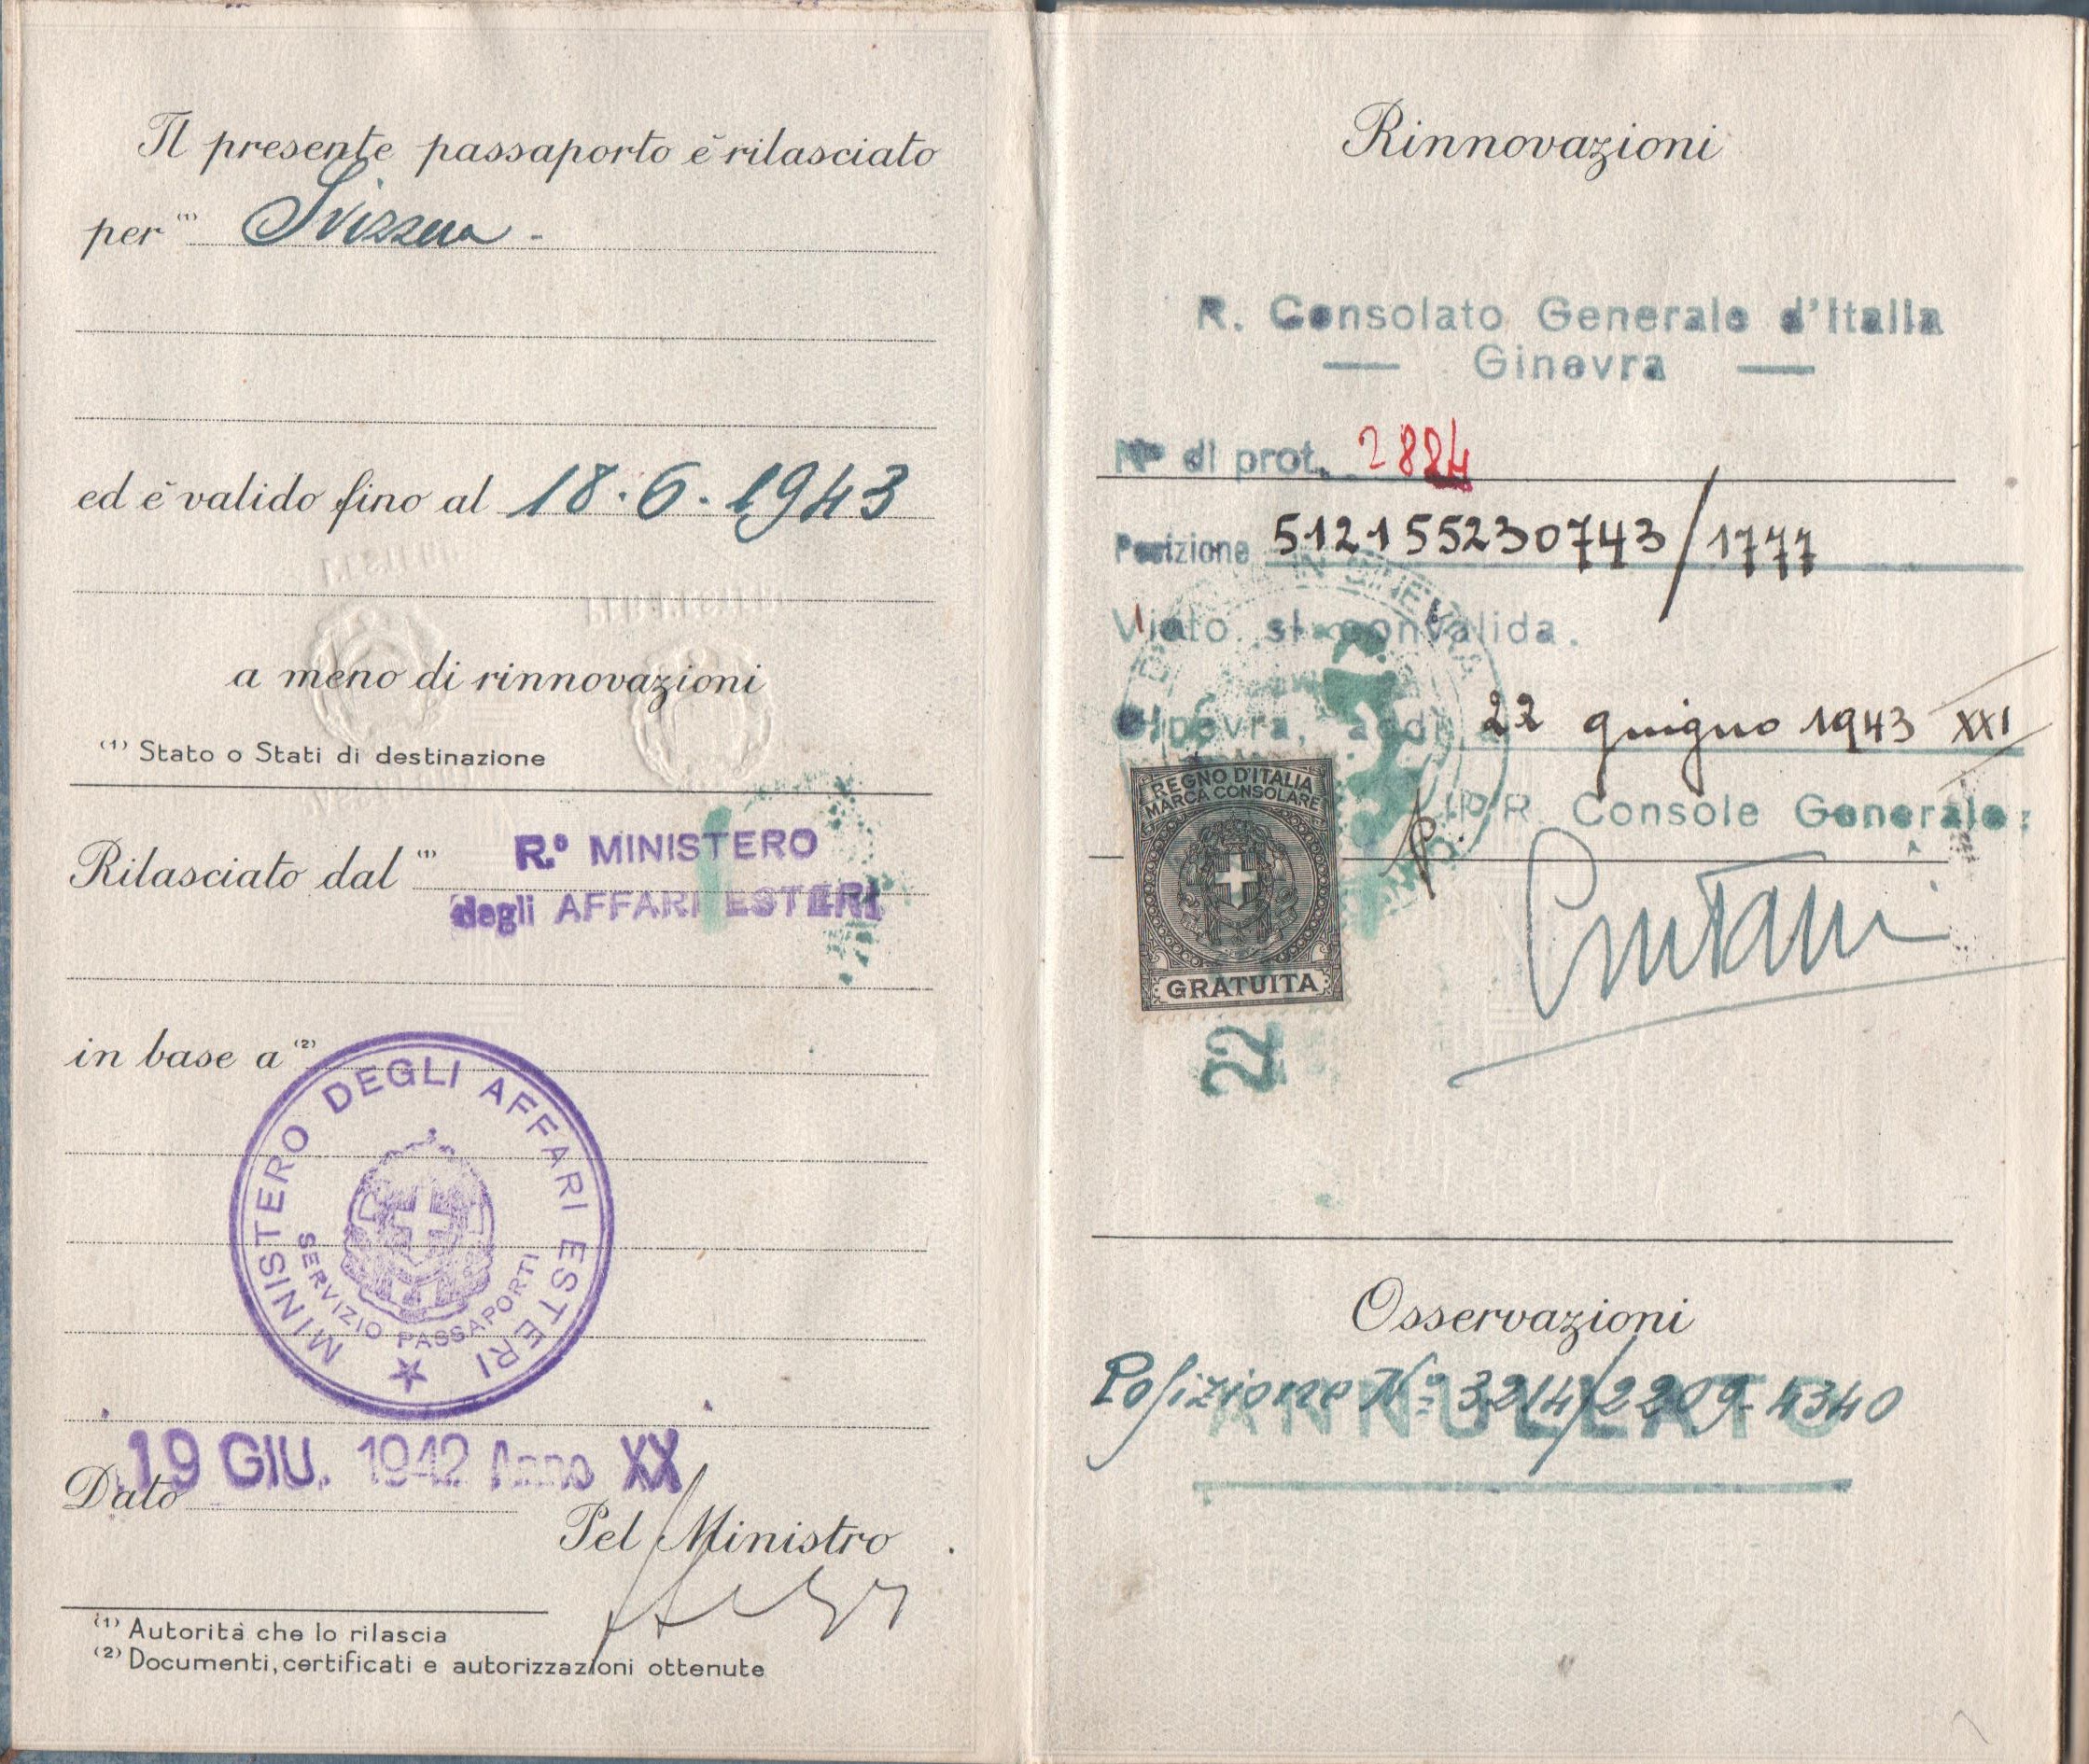 Il presente passaporto è rilasciato
per (1) Svizzera -
ed è valido fino al 18.6.1943
a meno di rinnovazioni
(1) Stato o Stati di destinazione
Rilasciato dal (1) R.º MINISTERO
degli AFFARI ESTERI
in base a (2)
MINISTERO DEGLI AFFARI ESTERI
SERVIZIO PASSAPORTI
19 GIU. 1942 Anno XX
Dato
Pel Ministro
(1) Autorità che lo rilascia
(2) Documenti, certificati e autorizzazioni ottenute
Rinnovazioni
R. Consolato Generale d'Italia
— Ginevra —
Nº di prot. 2824
Posizione 512155230743/1777
Visto, si convalida.
Ginevra, addì 22 giugno 1943 XXI
p. Il R. Console Generale:
REGNO D'ITALIA
MARCA CONSOLARE
GRATUITA
22
Osservazioni
Posizione Nº 3214/2209-4340
ANNULLATO